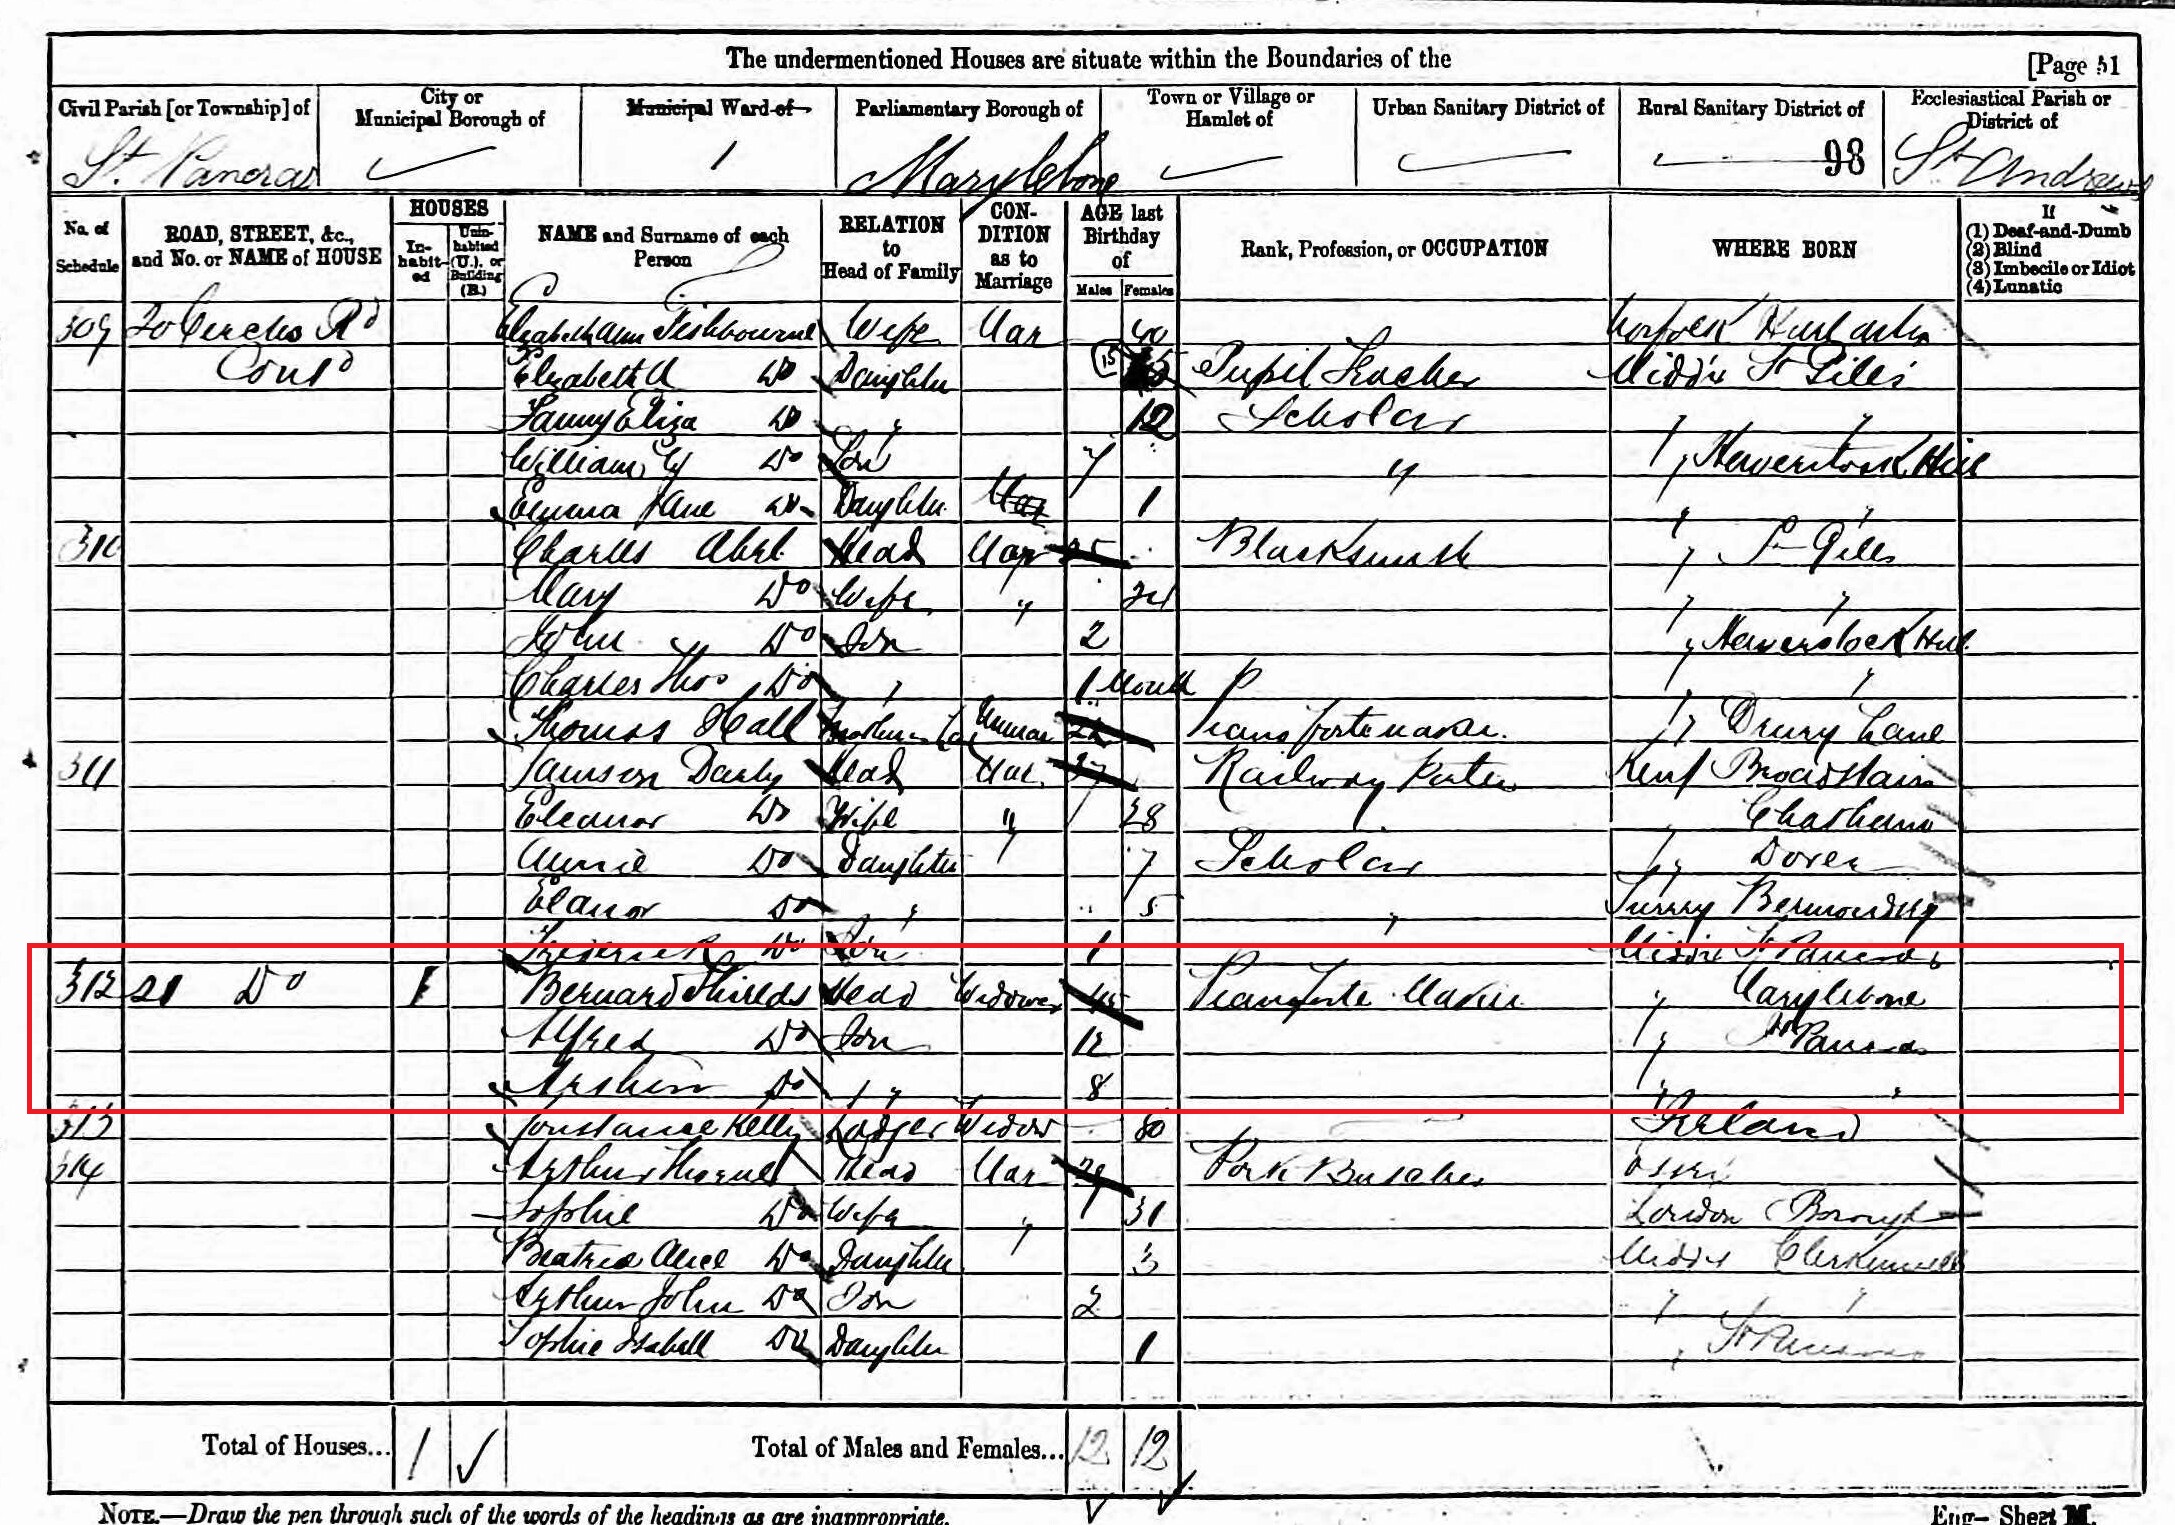 The undermentioned Houses are situate within the Boundaries of the
[Page 51
Civil Parish [or Township] of
City or Municipal Borough of
Municipal Ward of
Parliamentary Borough of
Town or Village or Hamlet of
Urban Sanitary District of
Rural Sanitary District of
Ecclesiastical Parish or District of
St. Pancras 1 Marylebone 98 St Andrews
No. of Schedule
ROAD, STREET, &c., and No. or NAME of HOUSE
HOUSES
In-habit-ed
Unin-habited (U.), or Building (B.)
NAME and Surname of each Person
RELATION to Head of Family
CON-DITION as to Marriage
AGE last Birthday of
Males Females
Rank, Profession, or OCCUPATION
WHERE BORN
If
(1) Deaf-and-Dumb
(2) Blind
(3) Imbecile or Idiot
(4) Lunatic
309 20 Rd Elizabeth Ann Fishbourne Wife Mar 40 Norfolk
Cont'd Elizabeth A Do Daughter 15 Pupil Teacher Middx St Giles
Fanny Eliza Do " 12 Scholar " "
William Do Son 7 " " Haverstock Hill
Emma Jane Do Daughter Mar 1 " "
310 Charles Abel Head Mar 25 Blacksmith " St Giles
Mary Do Wife " 24 " "
John Do Son 2 " Haverstock Hill
Charles Thos Do " 1 Month " "
Thomas Hall Unmar Pianoforte maker. " Drury Lane
311 Darby Head Mar. 37 Railway Porter Kent Broadstairs
Eleanor Do Wife " 28 Chatham
Annie Do Daughter 7 Scholar " Dover
Elanor Do " 5 " Surrey Bermondsey
Frederick Do Son 1 Middx St Pancras
312 21 Do 1 Bernard Shields Head Widower 45 Pianoforte Maker " Marylebone
Alfred Do Son 12 " St Pancras
Arthur Do " 8 " "
313 Constance Kelly Lodger Widow 80 Ireland
314 Arthur Head Mar 29 Pork Butcher Essex
Sophie Do Wife " 31 London Borough
Beatrice Alice Do Daughter 3 Middx Clerkenwell
Arthur John Do Son 2 " "
Sophie Isabell Do Daughter 1 " St Pancras
Total of Houses... 1
Total of Males and Females... 12 12
NOTE.—Draw the pen through such of the words of the headings as are inappropriate.
Eng— Sheet M.